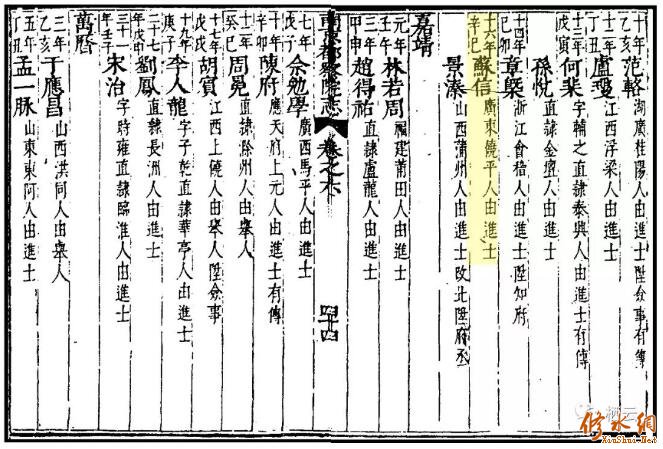 十年乙亥 范輅 湖廣桂陽人由進士陞僉事有傳
十二年丁丑 盧瓊 江西浮梁人由進士
十三年戊寅 何棐 字輔之直隸泰興人由進士有傳
孫悅 直隸金壇人由進士
十四年己卯 章槩 浙江會稽人由進士陞知府
十六年辛巳 蘇信 廣東饒平人由進士
景溱 山西蒲州人由進士改北陞府丞
嘉靖
元年壬午 林若周 福建莆田人由進士
三年甲申 趙得祐 直隸盧龍人由進士
南京都察院志 卷之六 四十四
七年戊子 余勉學 廣西馬平人由進士
十年辛卯 陳府 應天府上元人由進士有傳
十二年癸巳 周冕 直隸滁州人由舉人
十七年戊戌 胡賓 江西上饒人由舉人陞僉事
十九年庚子 李人龍 字子乾直隸華亭人由進士
二十七年戊申 劉鳳 直隸長洲人由進士
三十一年壬子 宋治 字時雍直隸臨淮人由進士
萬曆
三年乙亥 于應昌 山西洪同人由舉人
五年丁丑 孟一脉 山東東阿人由進士
修水網
XiuShui.Net